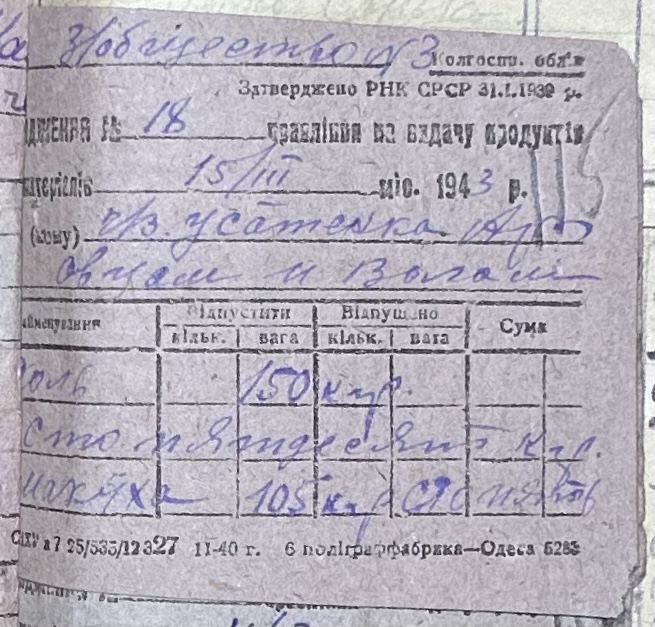 Зтобщество №3 Колгоспн. обл'к
Затверджено РНК СРСР 31.I.1939 р.
дження № 18 правління на видачу продуктів
матеріялів 15/III міс. 1943 р.
(кому) ч/з. Усатенка
овцам и Волам
айменування Відпустити Відпущено Сума
кільк. вага кільк. вага
соль 150 кгр.
сто пятдесят кгр.
макуха 105 кгр сто пять
25/535/12327 11-40 г. 6 поліграффабрика—Одеса 5283